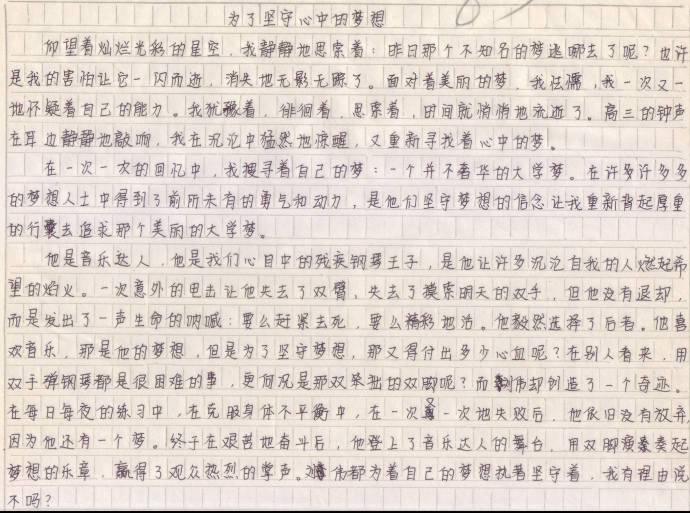 为了坚守心中的梦想
仰望着灿烂光彩的星空，我静静地思索着：昨日那个不知名的梦逃哪去了呢？也许
是我的害怕让它一闪而逝，消失地无影无踪了。面对着美丽的梦，我怯懦，我一次又一
地怀疑着自己的能力。我犹豫着，徘徊着，思索着，时间就悄悄地流逝了。高三的钟声
在耳边静静地敲响，我在沉沦中猛然地惊醒，又重新寻找着心中的梦。
在一次一次的回忆中，我搜寻着自己的梦：一个并不奢华的大学梦。在许多许多多
的梦想人士中得到了前所未有的勇气和动力，是他们坚守梦想的信念让我重新背起厚重
的行囊去追求那个美丽的大学梦。
他是音乐达人，他是我们心目中的残疾钢琴王子，是他让许多沉沦自我的人燃起希
望的焰火。一次意外的电击让他失去了双臂，失去了摸索明天的双手，但他没有退却，
而是发出了一声生命的呐喊：要么赶紧去死，要么精彩地活。他毅然选择了后者。他喜
欢音乐，那是他的梦想，但是为了坚守梦想，那又得付出多少心血呢？在别人看来，用
双手弹钢琴都是很困难的事，更何况是那双笨拙的双脚呢？而刘伟却创造了一个奇迹。
在每日每夜的练习中，在克服身体不平衡中，在一次又一次地失败后，他依旧没有放弃，
因为他还有一个梦。终于在艰苦地奋斗后，他登上了音乐达人的舞台，用双脚演奏奏起
梦想的乐章，赢得了观众热烈的掌声。刘伟都为着自己的梦想执著坚守着，我有理由说
不吗？